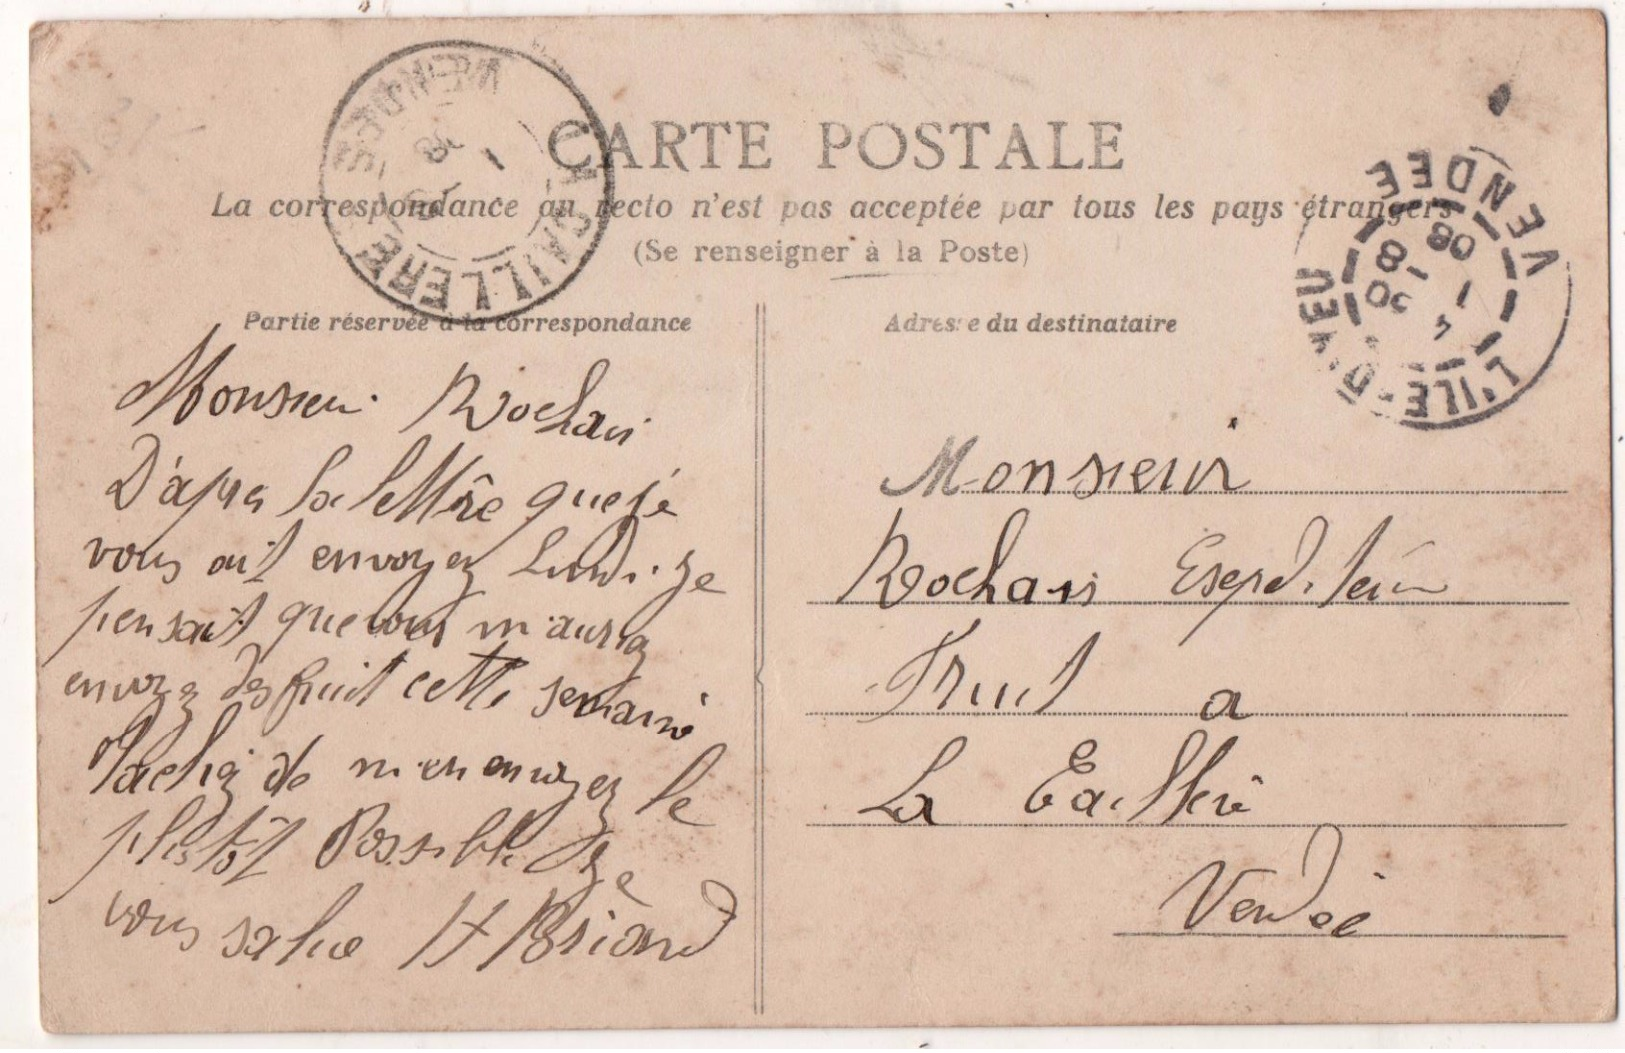 CARTE POSTALE
La correspondance au recto n'est pas acceptée par tous les pays étrangers
(Se renseigner à la Poste)
Partie réservée à la correspondance
Adresse du destinataire
LA CAILLERE VENDEE
L'ILE-D'YEU VENDEE
30 - 8 08
Monsieur Rochais
D'apres la lettre que je
vous ait envoyez Lundi. je
pensait que vous m'auriez
envoyez des fruit cette semaine
Tachez de m'en envoyez le
plustôt Possible Je
vous salue H Briand
Monsieur
Rochais Expediteur
Fruit a
La Caillere
Vendée